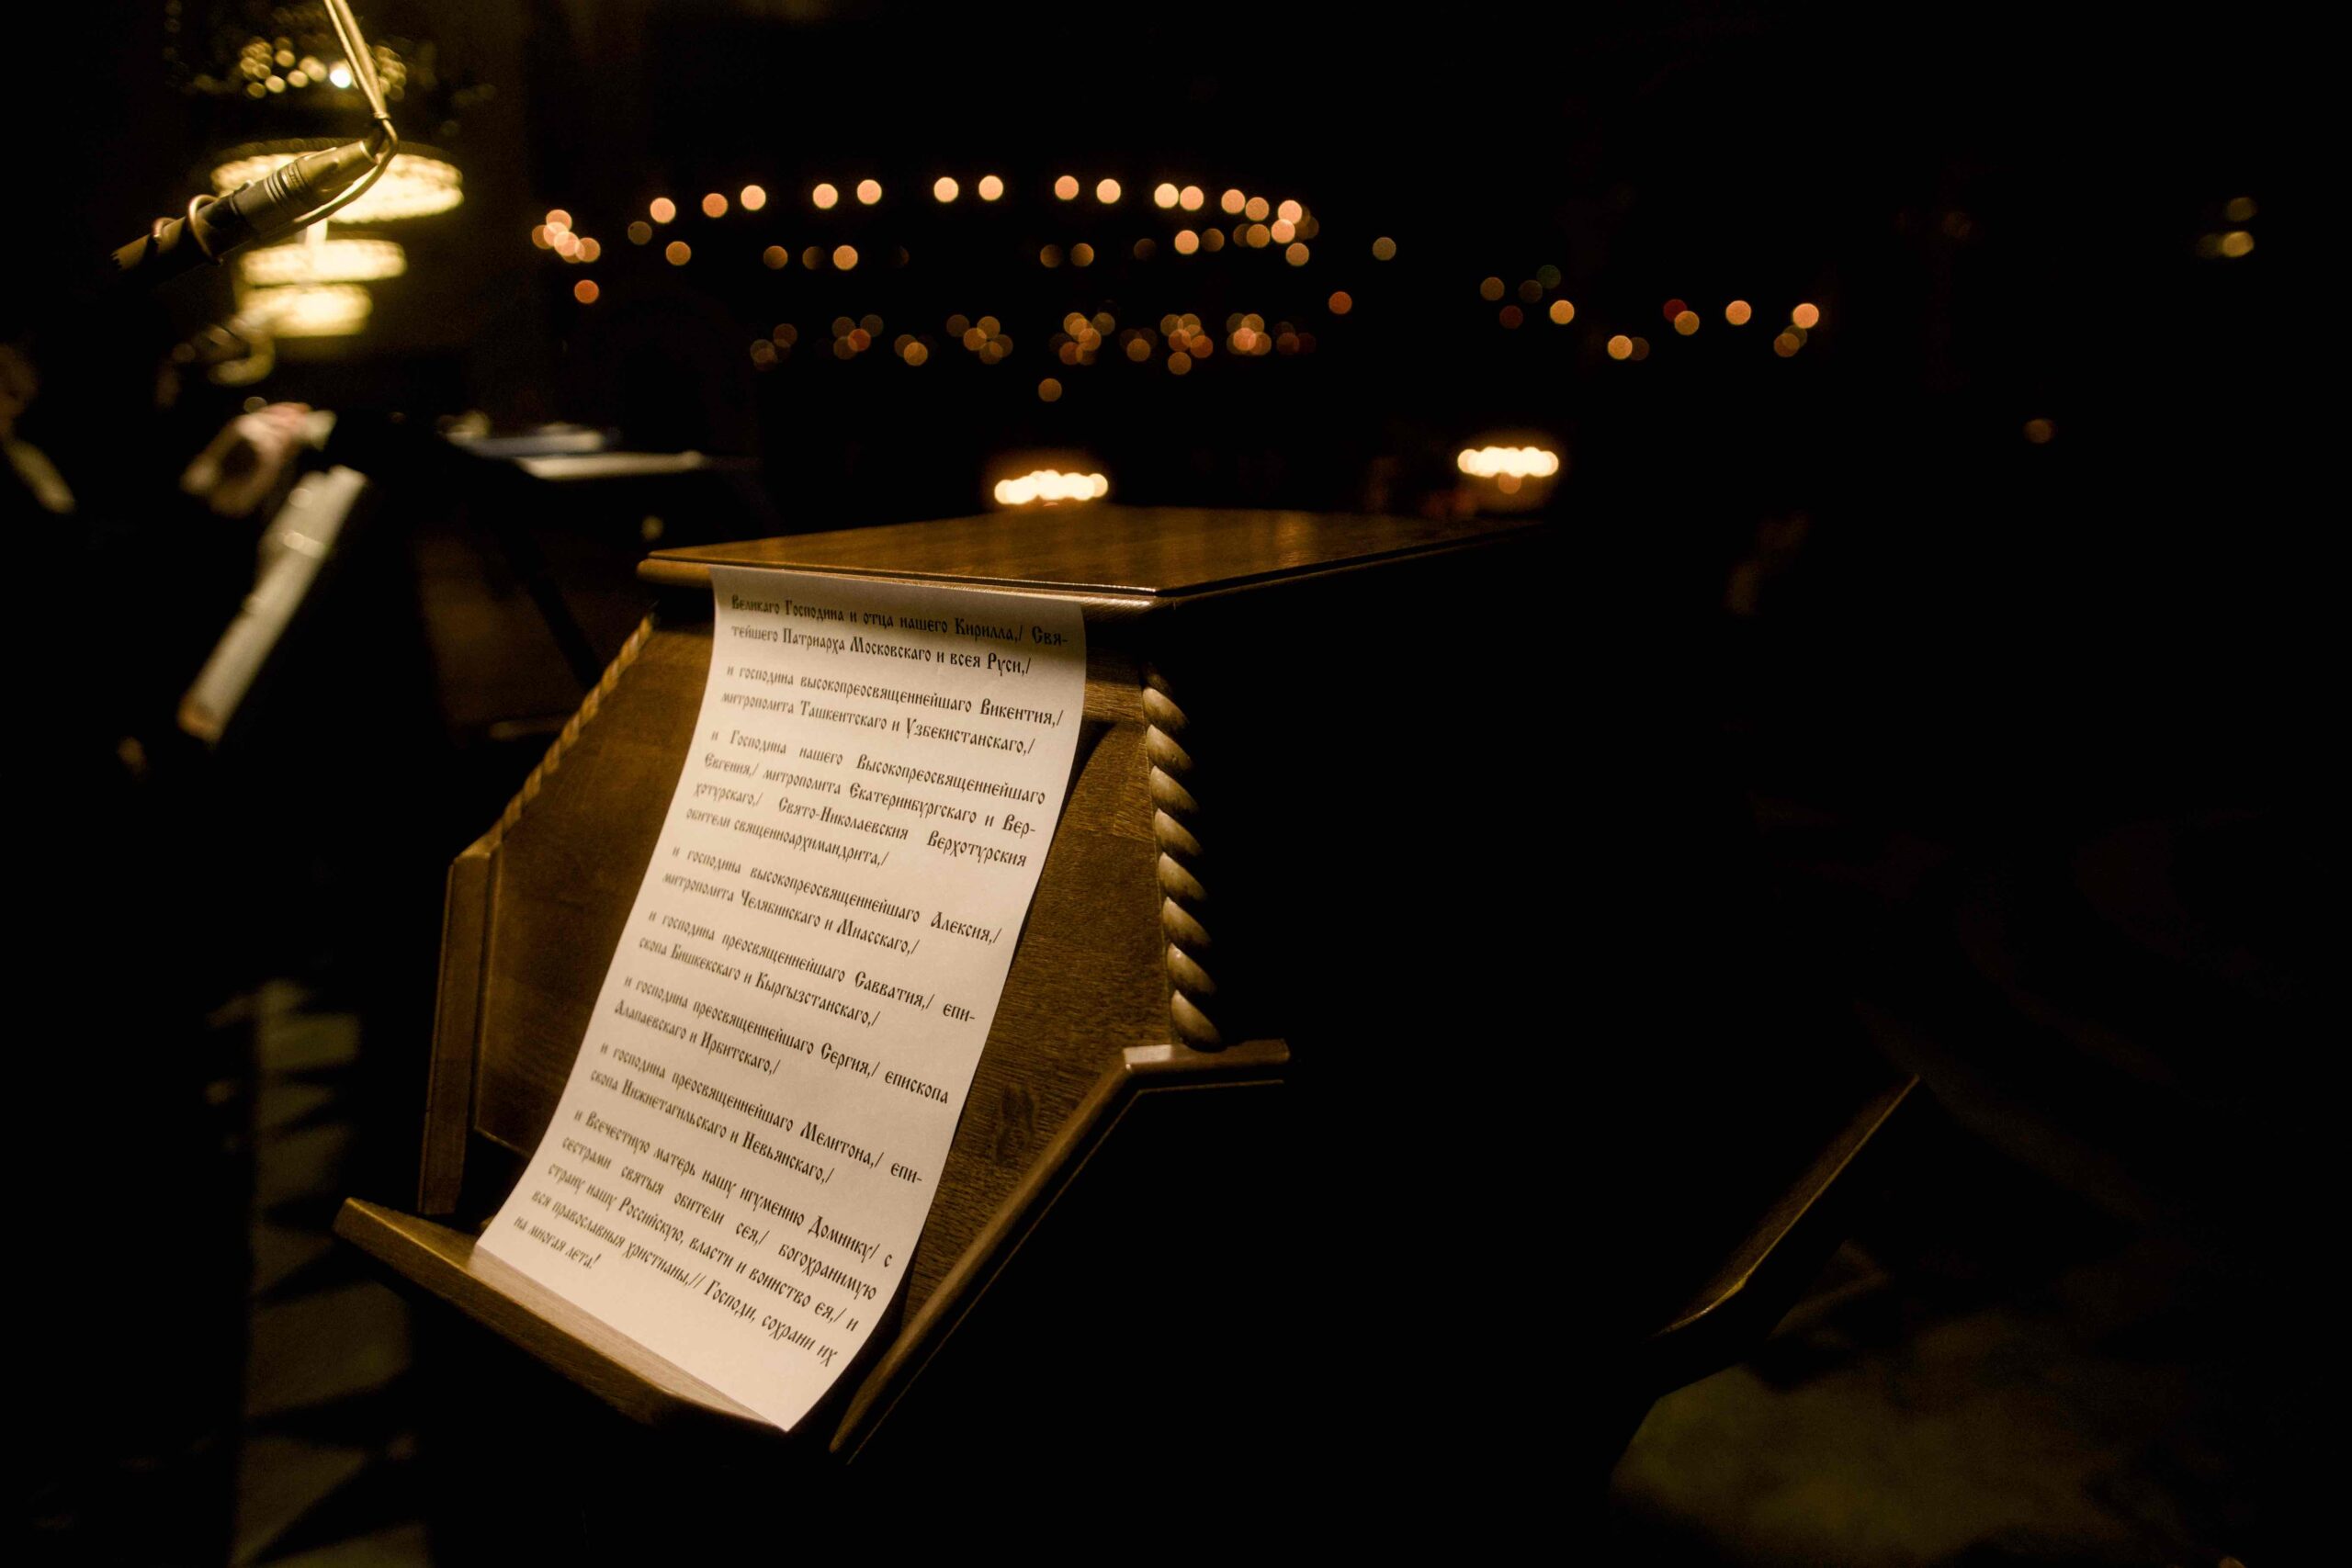 Великаго Господина и отца нашего Кирилла,/ Свя-
тейшего Патриарха Московскаго и всея Руси,/
и господина высокопреосвященнейшаго Викентия,/
митрополита Ташкентскаго и Узбекистанскаго,/
и Господина нашего Высокопреосвященнейшаго
Евгения,/ митрополита Екатеринбургскаго и Вер-
хотурскаго,/ Свято-Николаевския Верхотурския
обители священноархимандрита,/
и господина высокопреосвященнейшаго Алексия,/
митрополита Челябинскаго и Миасскаго,/
и господина преосвященнейшаго Савватия,/ епи-
скопа Бишкекскаго и Кыргызстанскаго,/
и господина преосвященнейшаго Сергия,/ епископа
Алапаевскаго и Ирбитскаго,/
и господина преосвященнейшаго Мелитона,/ епи-
скопа Нижнетагильскаго и Невьянскаго,/
и Всечестную матерь нашу игумению Домнику/ с
сестрами святыя обители сея,/ богохранимую
страну нашу Российскую, власти и воинство ея,/ и
вся православныя христианы,// Господи, сохрани их
на многая лета!